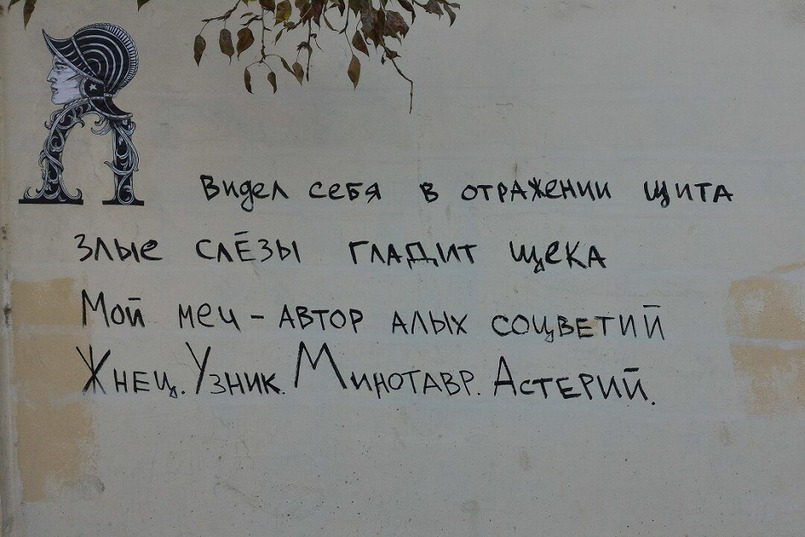 Я видел себя в отражении щита
Злые слёзы гладит щека
Мой меч - автор алых соцветий
Жнец. Узник. Минотавр. Астерий.